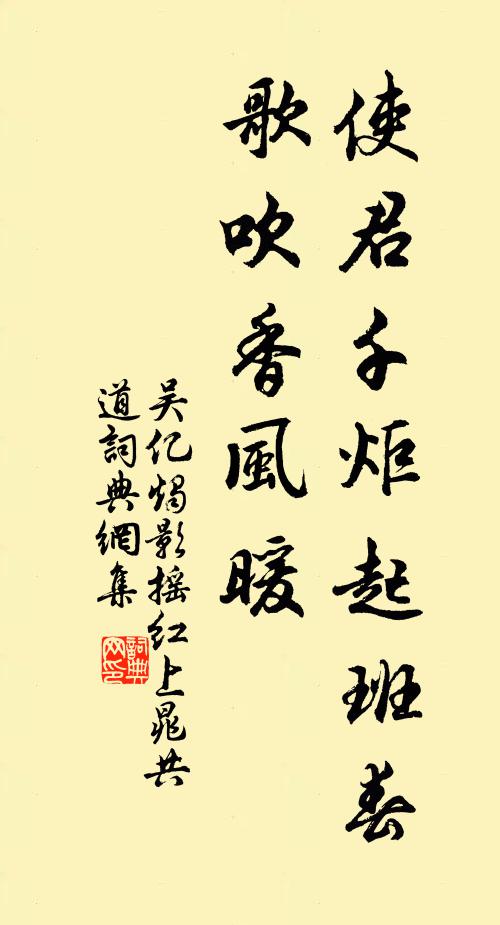 使君千炬起班春
歌吹香風暖
吴亿燭影摇红上晁共
道詞典網集
詞典
网印